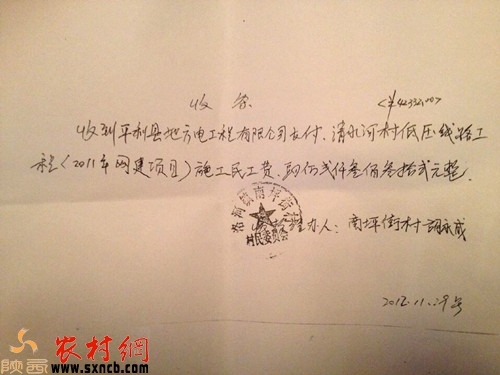 收条
<¥42332,00>
收到平利县地方电工程有限公司支付、清水河村低压线路工
程(2011年网建项目)施工民工费、肆万弍仟叁佰叁拾弍元整.
洛河镇南坪街村
村民委员会
办人: 南坪街村
2012.11.29号
陕西
农村網
www.sxncb.com